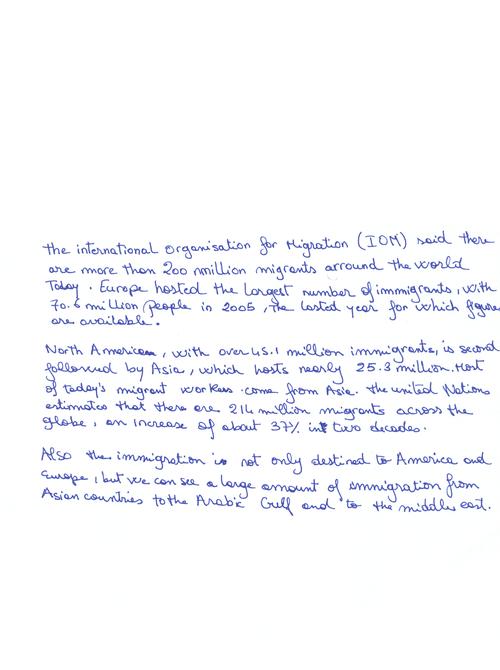 the international organisation for Migration (IOM) said there
are more than 200 million migrants arround the world
Today. Europe hosted the Largest number of immigrants, with
70.6 million people in 2005, the lasted year for which figures
are available.
North American, with over 45.1 million immigrants, is second
followed by Asia, which hosts nearly 25.3 million. Most
of today's migrant workers come from Asia. the united Nations
estimates that there are 214 million migrants across the
globe, an increase of about 37% in two decades.
Also the immigration is not only destined to America and
Europe, but we can see a large amount of immigration from
Asian countries to the Arabic Gulf and to the middle east.